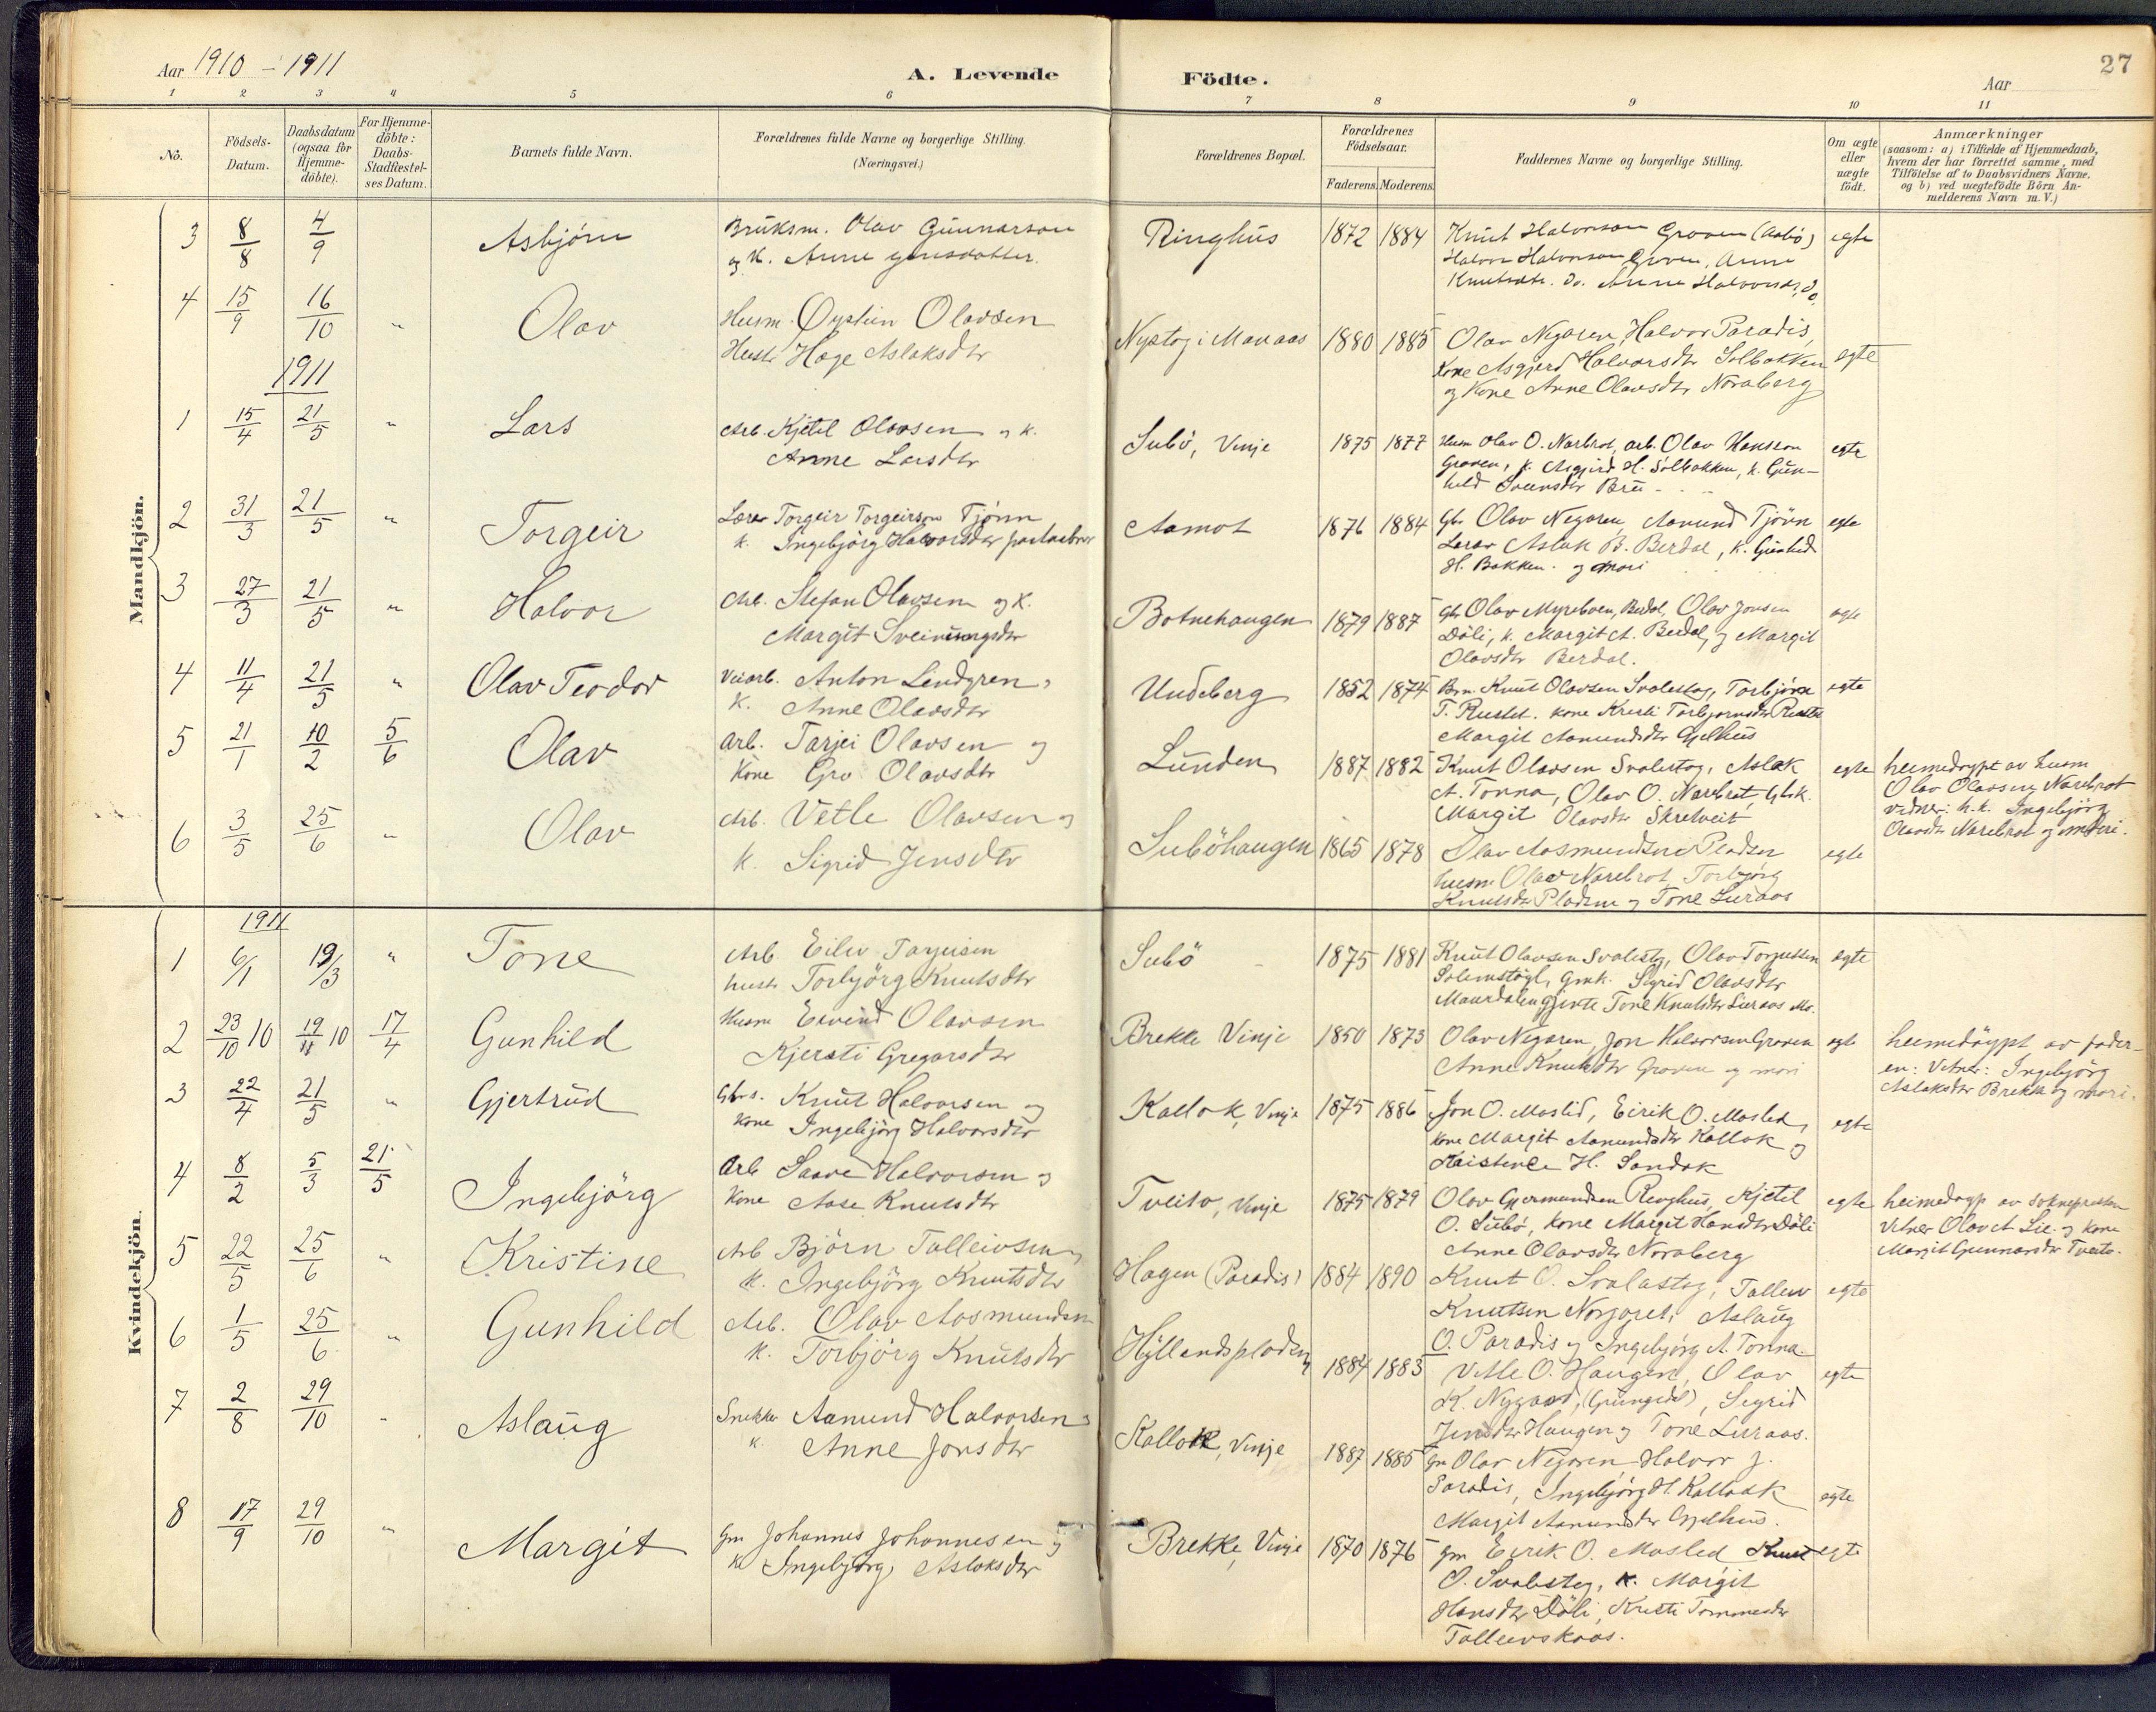 Aar 1910 - 1911
A. Levende Födte.
Aar
27
1 2 3 4 5 6 7 8 9 10 11
No.
Födsels-Datum.
Daabsdatum (ogsaa for Hjemme-döbte).
For Hjemme-döbte: Daabs-Stadfæstel-ses Datum.
Barnets fulde Navn.
Forældrenes fulde Navne og borgerlige Stilling.
(Næringsvei.)
Forældrenes Bopæl.
Forældrenes Födselsaar.
Faderens. Moderens.
Faddernes Navne og borgerlige Stilling.
Om ægte eller uægte födt.
Anmærkninger
(saasom: a) i Tilfælde af Hjemmedaab, hvem der har forrettet samme, med Tilföielse af to Daabsvidners Navne, og b) ved uægtefödte Börn An-melderens Navn m. V.)
Mandkjön.
3 8/8 4/9 Asbjörn
Bruksm. Olav Gunnarson
og K. Anne Jensdotter.
Ringhus 1872 1884
Knut Halvorson Groven (Aabö)
Halvor Halvorson Groven, Anne
Knutsdtr. Do. Anne Halvorsdr. Do.
egte
4 15/9 16/10 " Olav
Husm. Øystein Olavsen
Hustr Hæge Aslaksdtr
Nystog i Manaas 1880 1885
Olav Negaren, Halvor Paradis,
Kone Asgjerd Halvorsdtr Solbakken
og Kone Anne Olavsdtr Noraberg
egte
1911
1 15/4 21/5 " Lars
Arb. Kjetil Olavsen og k.
Anne Larsdtr
Subö, Vinje 1875 1877
Husm Olav O. Narbrot, arb. Olav Hansson
Groven, k. Asgjerd H. Solbakken, k. Gun-
hild Sveinsdtr Bru
egte
2 31/3 21/5 " Torgeir
Lærer Torgeir Torgeirson Tjönn
k. Ingebjörg Halvorsdtr
Aamot 1876 1884
Gbr Olav Negaren, Aamund Tjönn
Lærar Aslak B. Berdal, k. Gunhild
H. Bakken og mori
egte
3 27/3 21/5 " Halvor
Arb. Stefan Olavsen og k.
Margit Sveinungsdtr
Botnehaugen 1879 1887
Gbr Olav Myreboen, Berdal, Olav Jonsen
Döli, k. Margit A. Berdal, og Margit
Olavsdtr Berdal.
egte
4 11/4 21/5 " Olav Teodor
Veiarb. Anton Lendgren,
K. Anne Olavsdtr
Undeberg 1852 1874
Brm. Knut Olavsen Svalestog, Torbjörn
T. Rustet. kone Kristi Torbjornsdtr Rustet
Margit Aamundsdtr Gjelhus
egte
5 21/1 10/2 5/6 Olav
Arb. Tarjei Olavsen og
Kone Gro Olavsdtr
Lunden 1887 1882
Knut Olavsen Svalestog, Aslak
A. Tonna, Olav O. Narebrot, Gbk.
Margit Olavsdtr Skretveit
egte
heimedöypt av husm
Olav Olavsen Narebrot
vidner: h.k. Ingebjörg
Olavsdtr Narebrot og mori.
6 3/5 25/6 " Olav
Arb. Vetle Olavsen og
k. Sigrid Jensdtr
Suböhaugen 1865 1878
Olav Aasmundsen Pladsen
husm. Olav Narebrot, Torbjörg
Knutsdtr Pladsen og Tone Luraas
egte
Kvindekjön.
1911
1 6/1 19/3 " Tone
Arb Eiliv Tarjeisen
hustr Torbjörg Knutsdtr
Subö 1875 1881
Knut Olavsen Svalestog, Olav Torjussen
Solemstögl, Gmk. Sigrid Olavsdtr
Maurdalen, gjente Tone Knutsdtr Luraas Mo.
egte
2 23/10 10 19/11 10 17/4 Gunhild
Husm Eivind Olavsen
Kjersti Gregarsdtr
Brekke Vinje 1850 1873
Olav Negaren, Jon Halvorsen Groven
Anne Knutsdtr Groven og mori
egte
heimedöypt av fader-
en: Vitner: Ingebjörg
Aslaksdtr Brekke og mori.
3 22/4 21/5 " Gjertrud
Gbr. Knut Halvorsen og
Kone Ingebjörg Halvorsdtr
Kallok, Vinje 1875 1886
Jon O. Moslid, Eirik O. Moslid,
Kone Margit Aamundsdtr Kallok og
H. Sandok
egte
4 8/2 5/3 21/5 Ingebjörg
Arb Saave Halvorsen og
Kone Aase Knutsdtr
Tveito, Vinje 1875 1879
Olav Gjermundsen Ringhus, Kjetil
O. Subö, kone Margit Hansdtr Döli
Anne Olavsdtr Noraberg
egte
heimedöyp av soknepresten
Vitner Olav A. Lie og kone
Margit Gunnarsdtr Tveito.
5 22/5 25/6 " Kristine
Arb Björn Talleivsen og
k. Ingebjörg Knutsdtr
Hagen (Paradis) 1884 1890
Knut O. Svalastog, Talleiv
Knutsen Norgaret, Aslaug
O. Paradis og Ingebjörg A. Tonna
egte
6 1/5 25/6 " Gunhild
Arb. Olav Aasmundsen
k. Torbjörg Knutsdtr
Hyllandspladsen 1884 1883
Vetle O. Haugen, Olav
K. Nygaard, (Grungedal), Sigrid
Jensdtr Haugen og Tone Luraas.
egte
7 2/8 29/10 " Aslaug
Snekker Aamund Halvorsen og
k Anne Jonsdtr
Kallok, Vinje 1887 1885
Gm Olav Negaren, Halvor J.
Paradis, Ingebjörg H. Kallaak
Margit Aamundsdtr Gjelhus.
egte
8 17/9 29/10 " Margit
Gm Johannes Johannesen og
K Ingebjörg Aslaksdtr
Brekke, Vinje 1870 1876
Gm Eirik O. Moslid, Knut
O. Svalestog, k. Margit
Hansdtr Döli, Kristi Tommesdtr
Talleivskaas.
egte